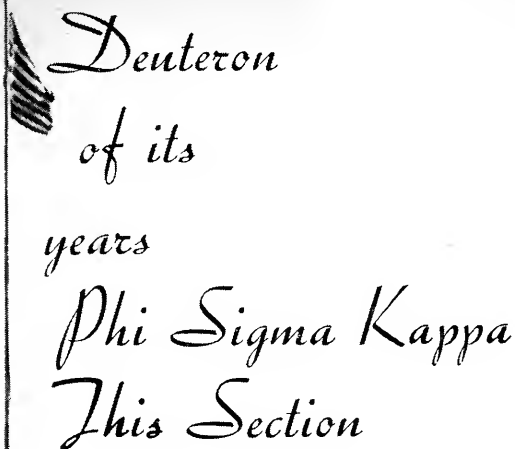 Deuteron
of its
years
Phi Sigma Kappa
This Section